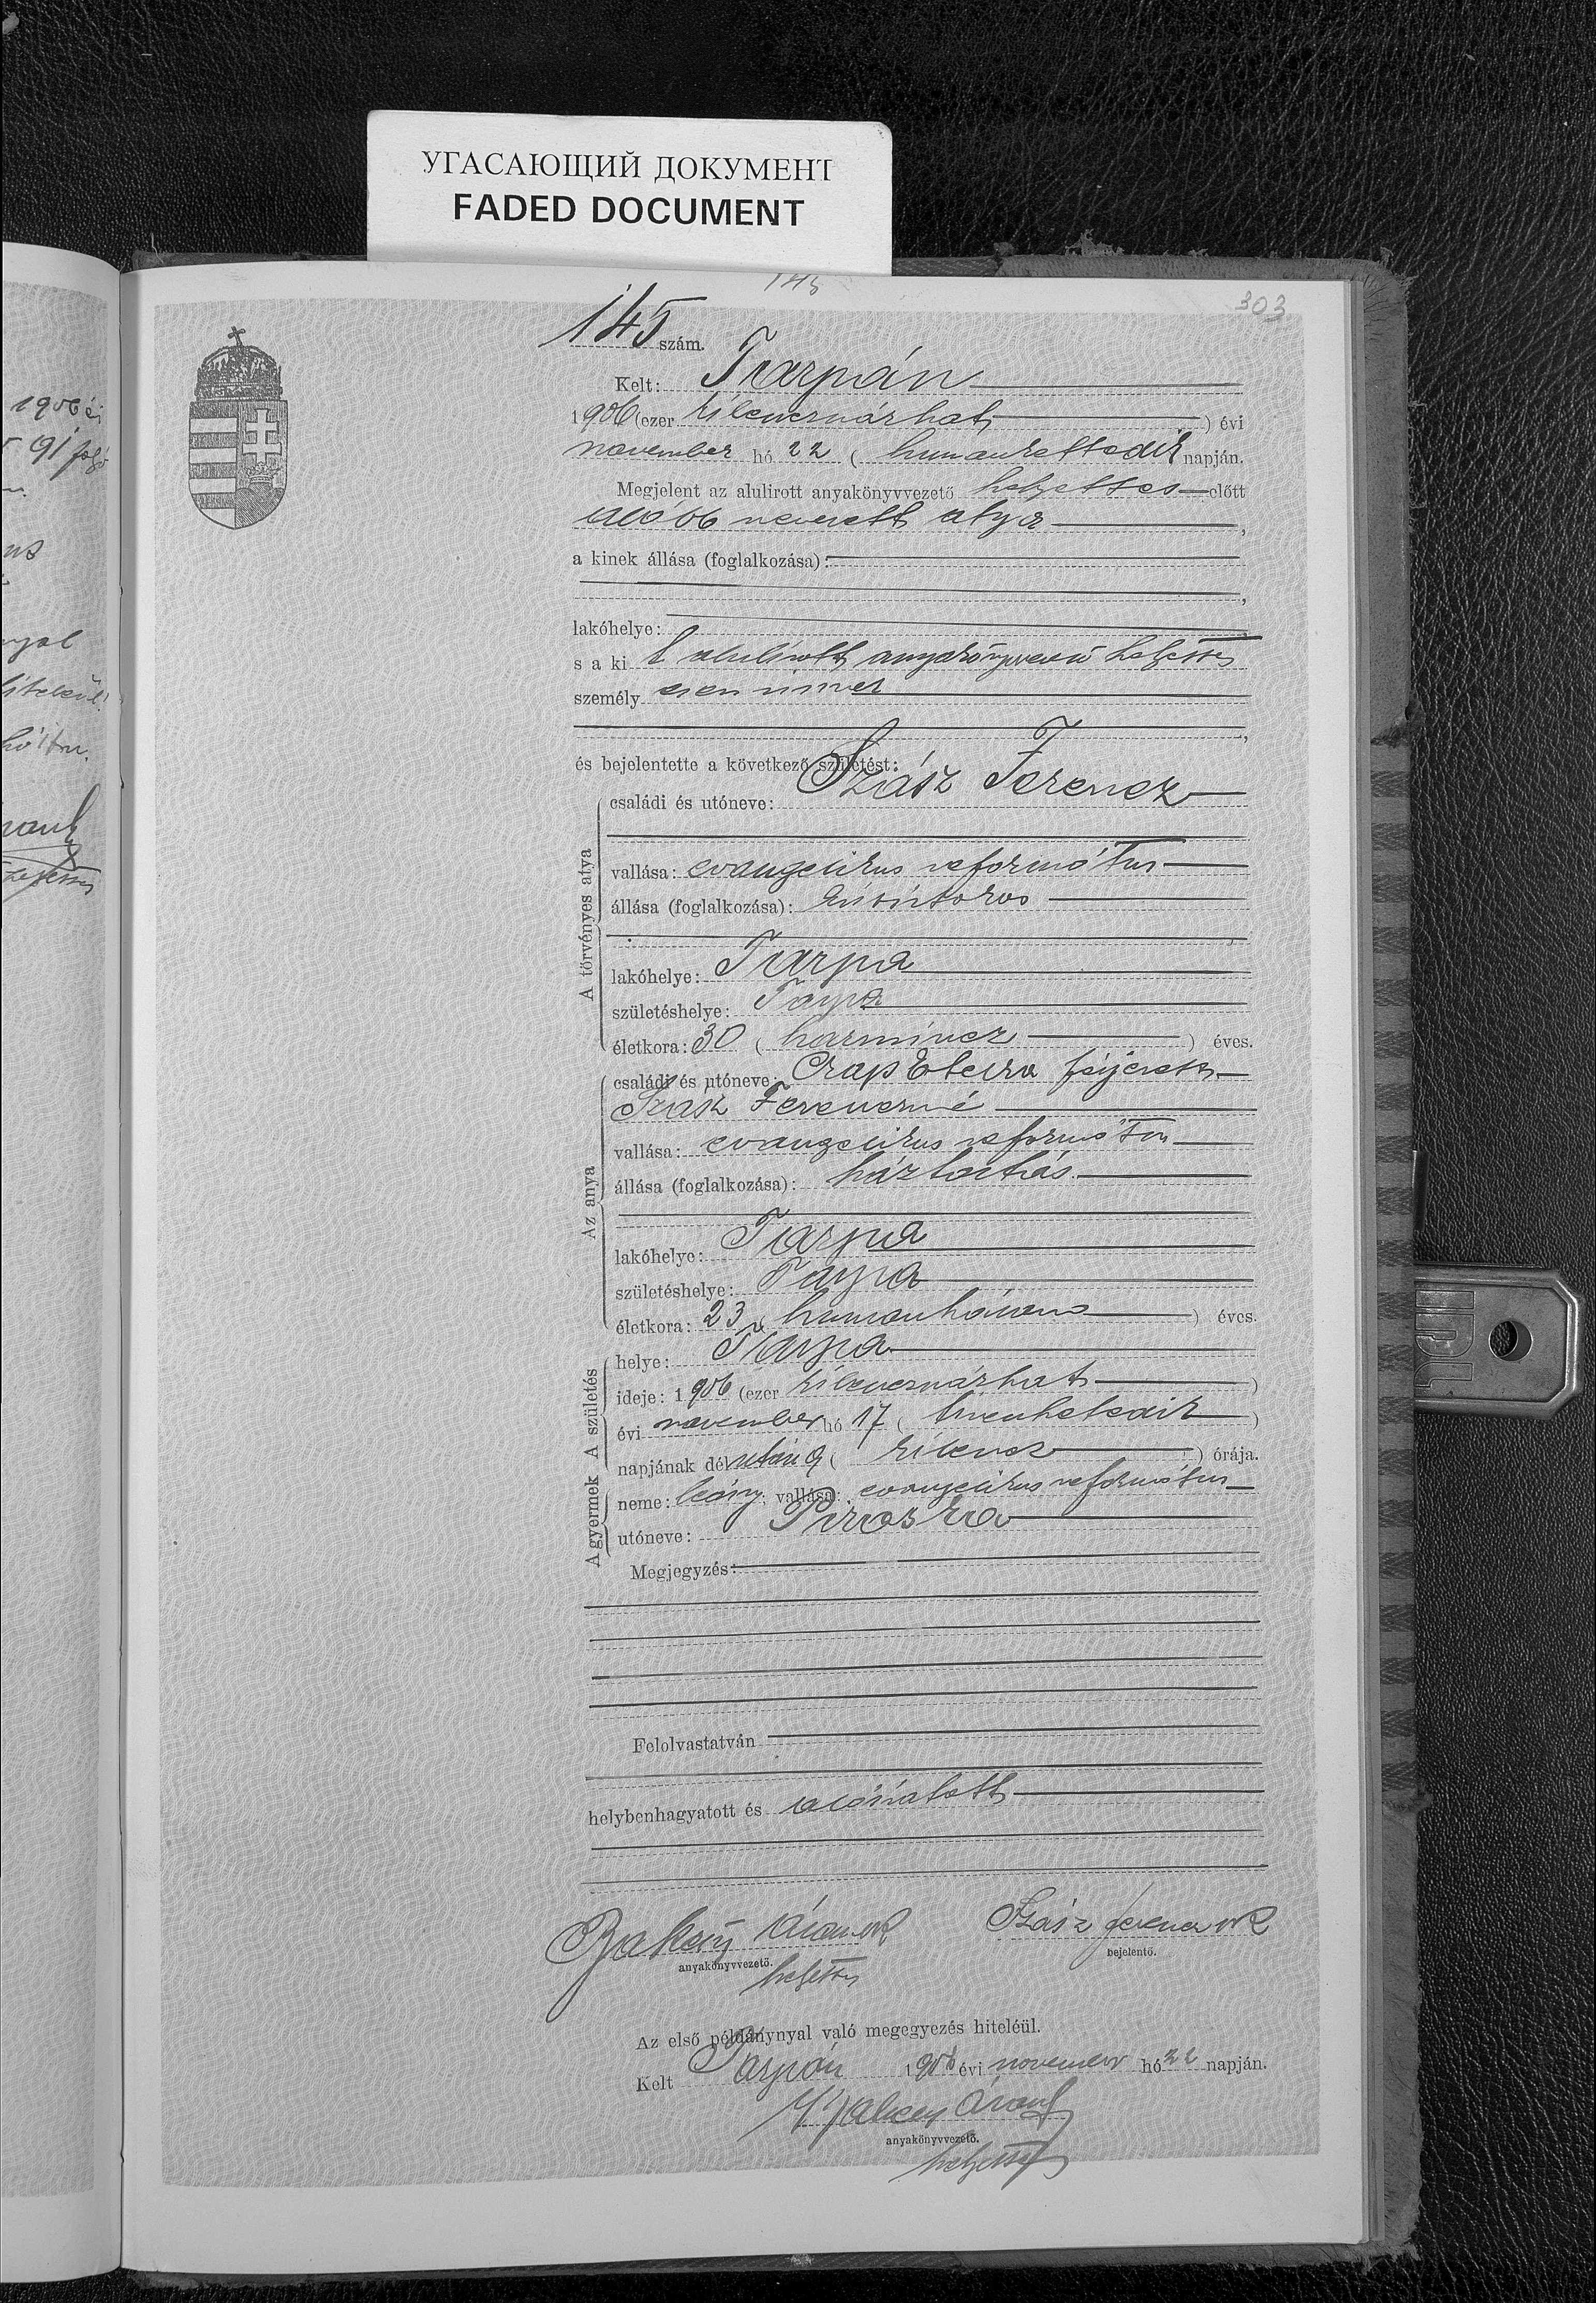 УГАСАЮЩИЙ ДОКУМЕНТ
FADED DOCUMENT
303
145 szám.
Kelt: Tarpán
1906 (ezer kilenczszázhat) évi
november hó 22 (huszonkettedik napján.
Megjelent az alulirott anyakönyvvezető helyettes előtt
alább nevezett atya,
a kinek állása (foglalkozása):
lakóhelye:
s a ki alulirott anyakönyvvezető helyettes
személyesen ismer
és bejelentette a következő születést:
A törvényes atya
családi és utóneve: Szász Ferencz
vallása: evangelikus református
állása (foglalkozása):
lakóhelye: Tarpa
születéshelye: Tarpa
életkora: 30 (harmincz) éves.
Az anya
családi és utóneve: Csap Eteka férjezett
Szász Ferenczné
vallása: evangelikus református
állása (foglalkozása): háztartás
lakóhelye: Tarpa
születéshelye: Tarpa
életkora: 23 (huszonhárom) éves.
A születés
helye: Tarpa
ideje: 1906 (ezer kilenczszázhat)
évi november hó 17 (tizenhetedik)
napjának délután 9 (kilencz) órája.
A gyermek
neme: leány; vallása: evangelikus református
utóneve: Piroska
Megjegyzés:
Felolvastatván
helybenhagyatott és aláiratott
Áron sk Szász Ferencz sk
anyakönyvvezető. bejelentő.
helyettes
Az első példánynyal való megegyezés hiteléül.
Kelt Tarpán 1906 évi november hó 22 napján.
Áron
anyakönyvvezető.
helyettes